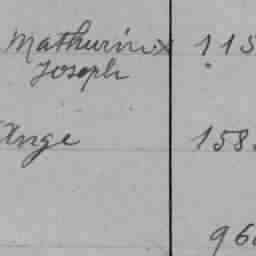 Mathurin x 115
Joseph
Ange 158.
96